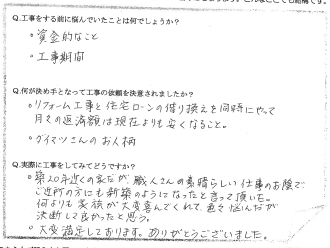 Q.工事をする前に悩んでいたことは何でしょうか？
。資金的なこと
。工事期間
Q.何が決め手となって工事の依頼を決意されましたか？
。リフォーム工事と住宅ローンの借り換えを同時にやって
月々の返済額は現在よりも安くなること。
。ダイマツさんのお人柄
Q.実際に工事をしてみてどうですか？
。築20年近くの家だが職人さんの素晴らしい仕事のお陰で、
ご近所の方にも新築のようになったと言って頂いた。
何よりも家族が大変喜んでくれて、悩んだが
決断して良かったと思う。
。大変満足しております。ありがとうございました。